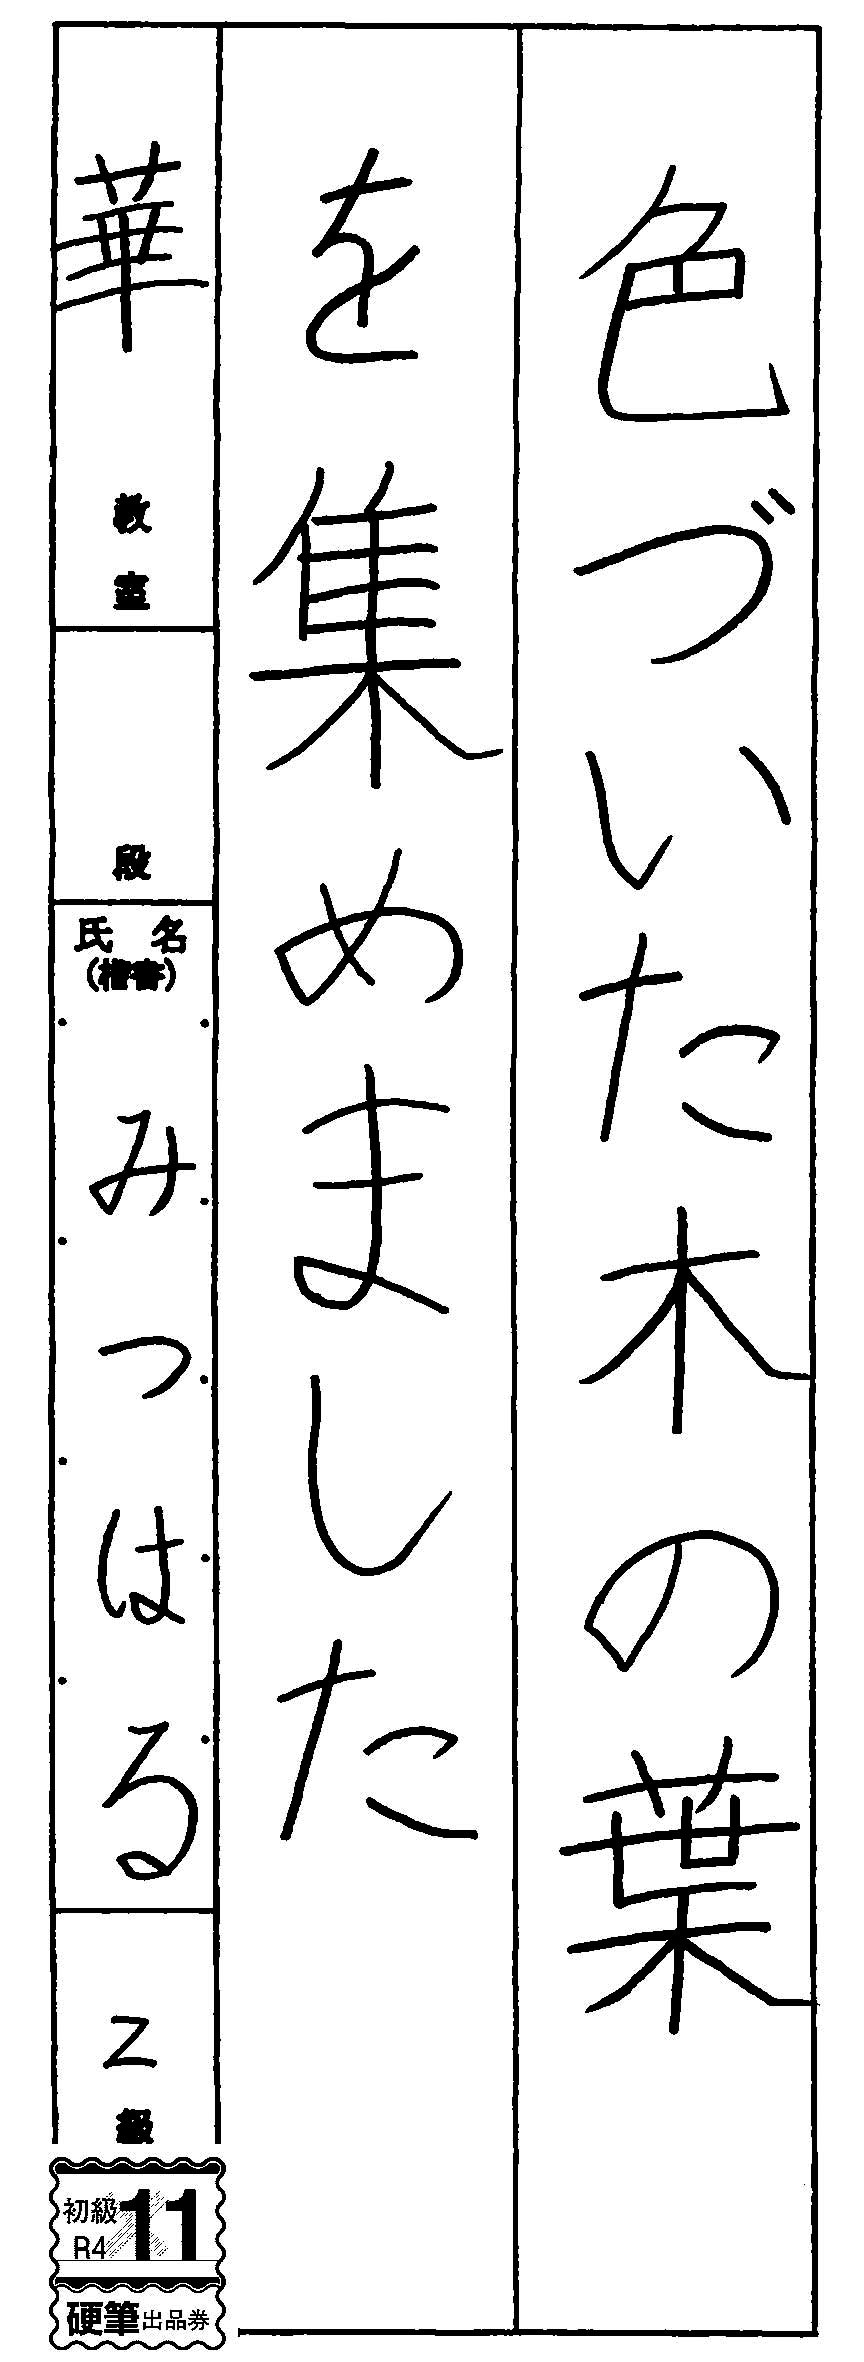 色づいた木の葉
を集めました
華
教室
段
氏名
(楷書)
みつはる
Z
級
初級
R4
11
硬筆出品券